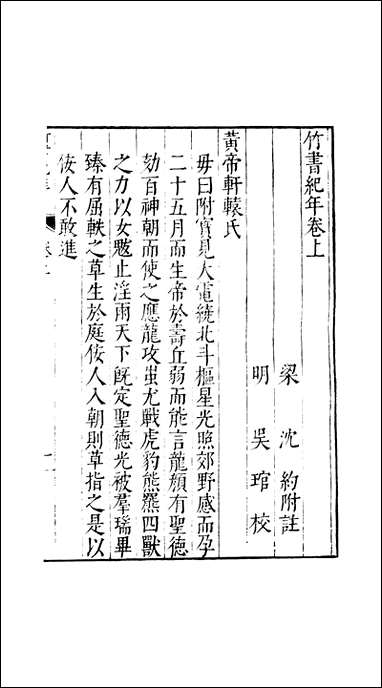 竹書紀年卷上
梁 沈 約附註
明 吳 琯 校
黃帝軒轅氏
母曰附寶見大電繞北斗樞星光照郊野感而孕
二十五月而生帝於壽丘弱而能言龍顏有聖德
劾百神朝而使之應龍攻蚩尤戰虎豹熊羆四獸
之力以女魃止淫雨天下旣定聖德光被羣瑞畢
臻有屈軼之草生於庭佞人入朝則草指之是以
佞人不敢進